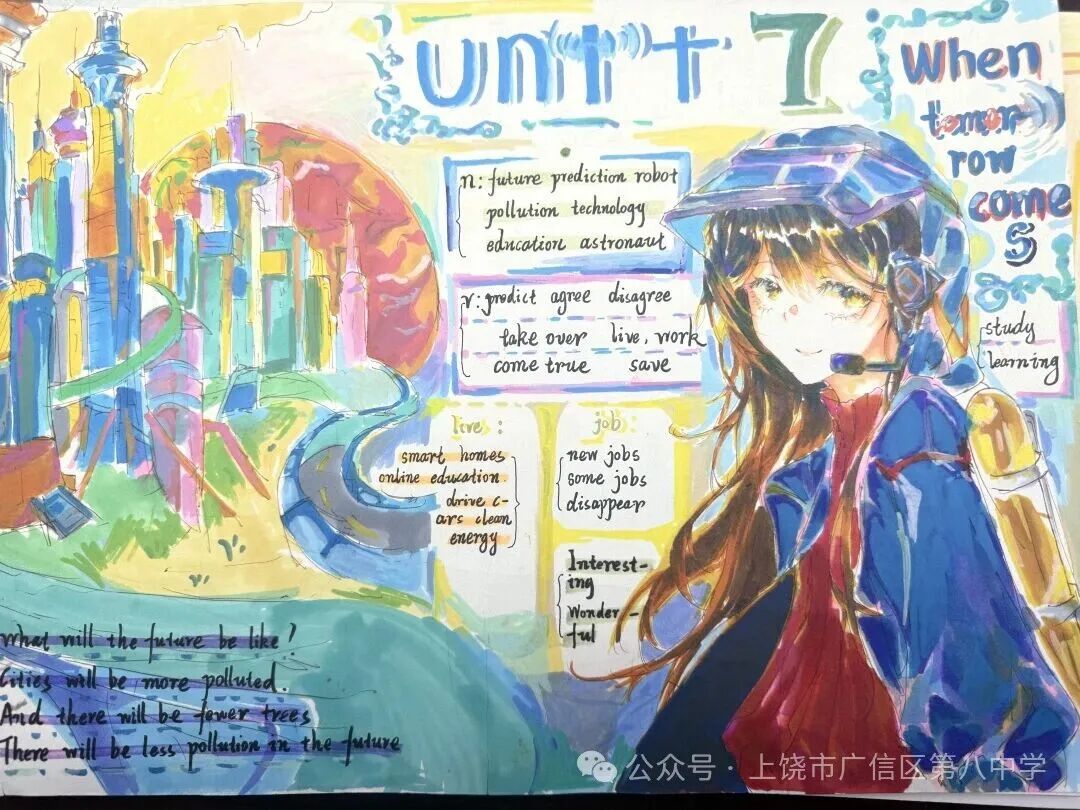 Unit 7
When
tomor-
row
come
S
n: future prediction robot
pollution technology
education astronaut
v: predict agree disagree
take over live, work
come true save
study
learning
live:
smart homes
online education
drive c-
ars clean
energy
job:
new jobs
some jobs
disappear
Interest-
ing
Wonder-
ful
What will the future be like?
Cities will be more polluted.
And there will be fewer trees
There will be less pollution in the future
公众号 · 上饶市广信区第八中学